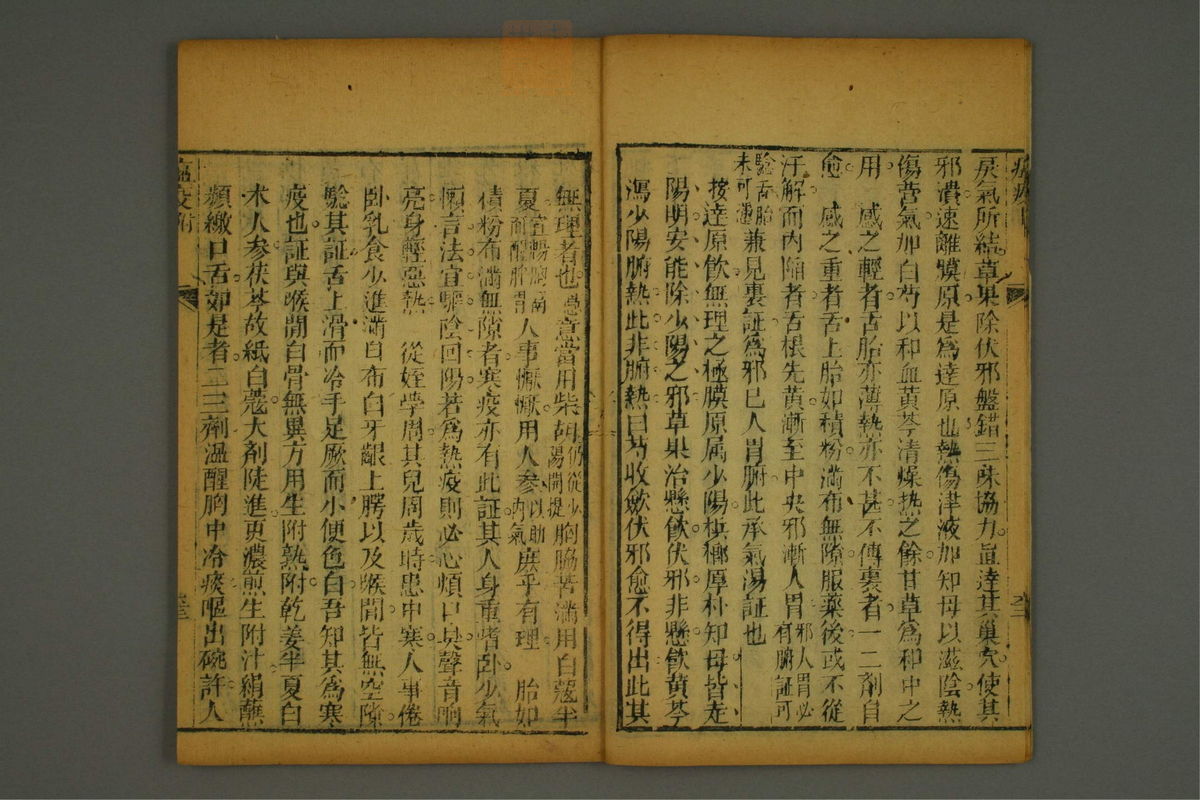 戾氣所結草果除伏邪盤錯三味協力直達其巢穴使其
邪潰速離膜原是為達原也熱傷津液加知母以滋陰熱
傷營氣加白芍以和血黃芩清燥熱之餘甘草為和中之
用　感之輕者舌胎亦薄熱亦不甚不傳裏者一二劑自
愈　感之重者舌上胎如積粉滿布無隙服藥後或不從
汗解而內陷者舌根先黃漸至中央邪漸入胃邪入胃必有腑証可
驗舌胎未可憑兼見裏証為邪已入胃腑此承氣湯証也
按達原飲無理之極膜原屬少陽檳榔厚朴知母皆走
陽明安能除少陽之邪草果治懸飲伏邪非懸飲黃芩
瀉少陽腑熱此非腑熱白芍收斂伏邪愈不得出此其
無理者也愚意當用柴胡仍從少陽開提胸脇苦滿用白蔻半
夏宣暢胸膈而醒脾胃人事懨懨用人參以助內氣庶乎有理　胎如
積粉布滿無隙者寒疫亦有此証其人身重嗜卧少氣
懶言法宜驅陰回陽若為熱疫則必心煩口臭聲音响
亮身輕惡熱　從姪學周其兒周歲時患中寒人事倦
卧乳食少進滿口布白牙齦上腭以及喉間皆無空隙
驗其証舌上滑而冷手足厥而小便色白吾知其為寒
疫也証與喉間白骨無異方用生附熟附乾姜半夏白
朮人參茯苓故紙白蔻大劑陡進更濃煎生附汁絹蘸
頻繳口舌如是者二三劑溫醒胸中冷痰嘔出碗許人